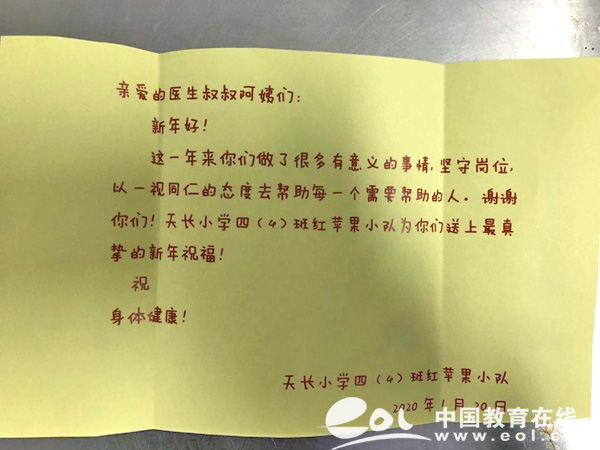 亲爱的医生叔叔阿姨们：
新年好！
这一年来你们做了很多有意义的事情,坚守岗位,
以一视同仁的态度去帮助每一个需要帮助的人。谢谢
你们！天长小学四（4）班红苹果小队为你们送上最真
挚的新年祝福！
祝
身体健康！
天长小学四（4）班红苹果小队
2020年1月20日
eol 中国教育在线
www.eol.c